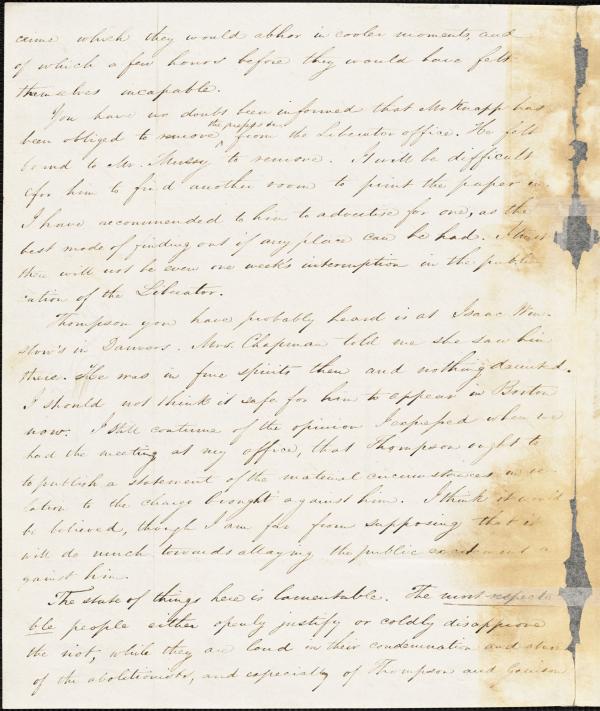 crime which they would abhor in cooler moments, and
of which a few hours before they would have felt
themselves incapable.
You have no doubt been informed that Mr Knapp has
been obliged to remove from the Liberator office. He felt
bound to Mr. Mussey to remove. It will be difficult
for him to find another room to print the paper in.
I have recommended to him to advertise for one, as the
best mode of finding out if any place can be had. I trust
there will not be even one week's interruption in the publi
cation of the Liberator.
Thompson you have probably heard is at Isaac Win-
slow's in Danvers. Mrs. Chapman told me she saw him
there. He was in fine spirits then and nothing daunted.
I should not think it safe for him to appear in Boston
now. I still continue of the opinion I expressed when we
had the meeting at my office, that Thompson ought to
to publish a statement of the material circumstances in re-
lation to the charge brought against him. I think it would
be believed, though I am far from supposing that it
will do much towards allaying the public excitement a
gainst him.
The state of things here is lamentable. The most respecta
ble people either openly justify or coldly disapprove
the riot, while they are loud in their condemnation and
of the abolitionists, and especially of Thompson and Garrison